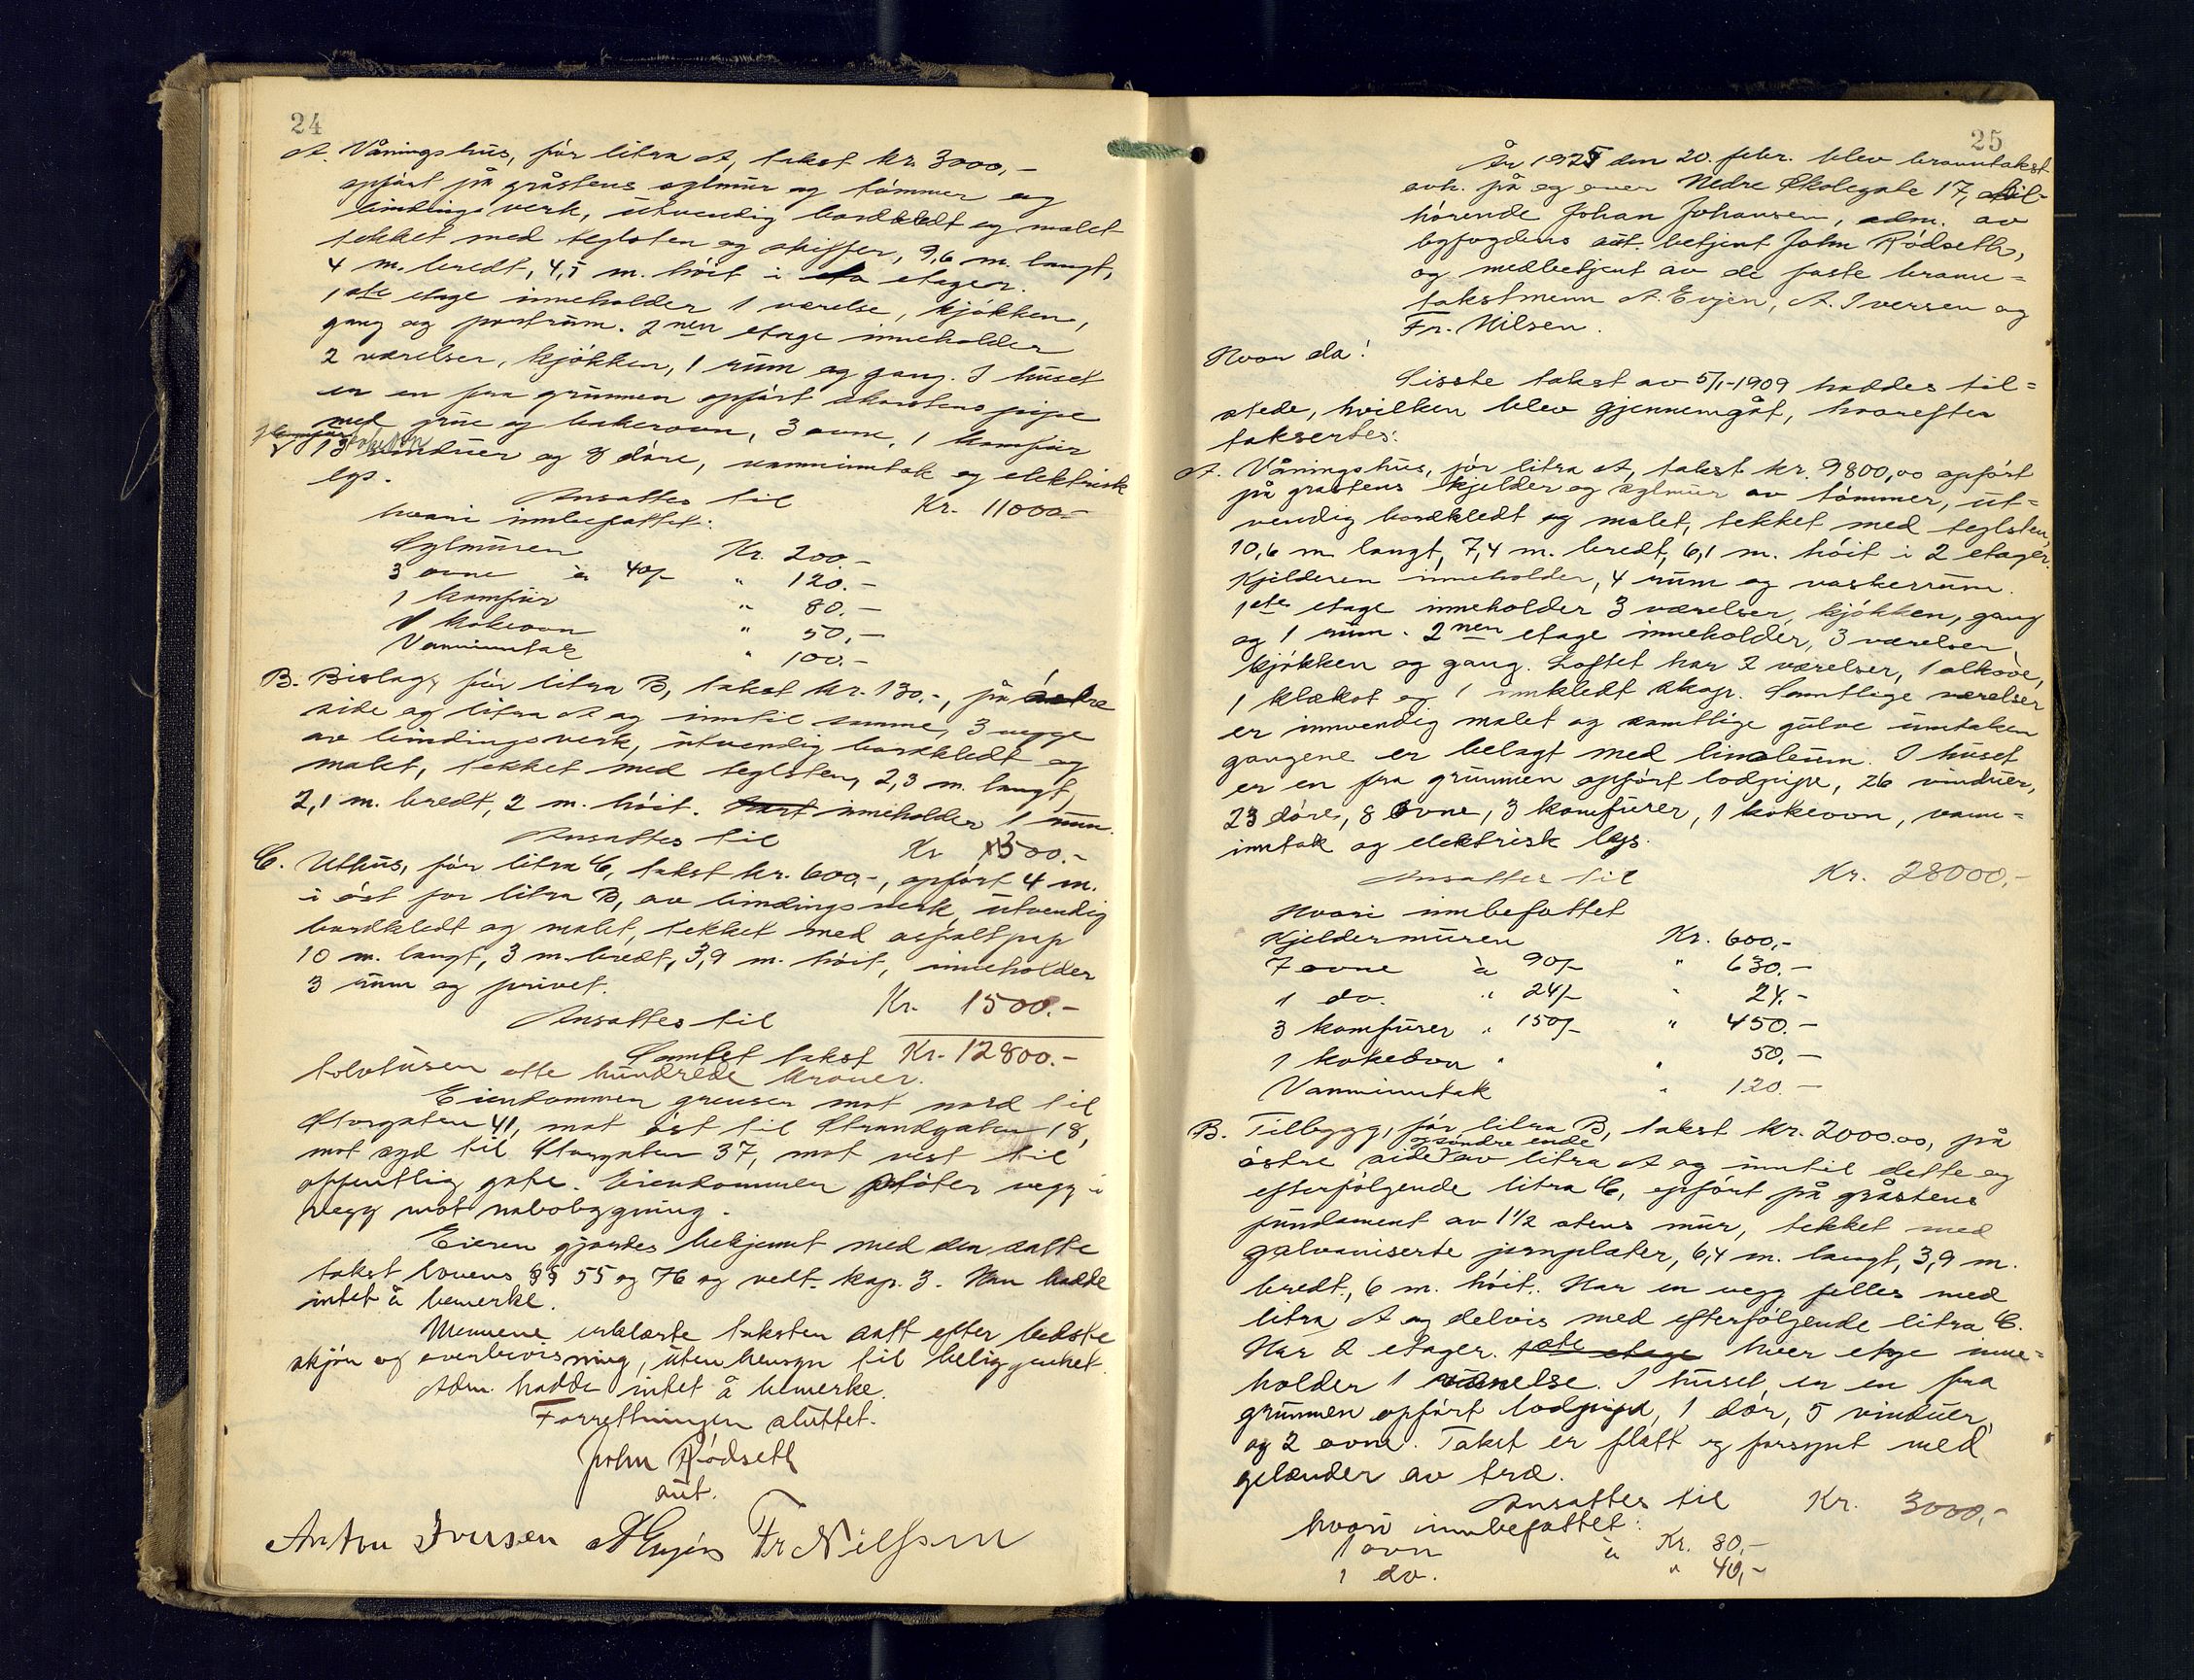 24
A. Våningshus, för litra A, takst kr. 3000,-
opført på gråstens sylmur og tømmer og
bindingsverk, utvendig bordkledt og malet
tekket med teglsten og skiffer, 9,6 m. langt,
4 m. bredt, 4,5 m. höit i etager.
1ste etage inneholder 1 værelse, kjökken,
gang og 2nen etage inneholder
2 værelser, kjökken, 1 rum og gang. I huset
er en fra grunnen opfört skorstenspipe
med grue og bakerovn, 3 ovne, 1 komfür
13 vinduer og 8 döre, vanninntak og elektrisk
lys.
Ansattes til Kr. 11000.-
hvori innbefattet:
Sylmüren Kr. 200.-
3 ovne à 40/- " 120.-
1 komfür " 80.-
1 kokeovn " 50.-
Vanninntak " 100.-
B. Bislag, för litra B, takst kr. 130.-, på östre
side og litra A og inntil samme, 3 vegge
av bindingsverk, utvendig bordkledt og
malet, tekket med teglsten, 2,3 m. langt,
2,1 m. bredt, 2 m. höit. inneholder 1 rum.
Ansattes til Kr 300.-
C. Uthus, för litra C, takst kr. 600,-, opfört 4 m.
i öst for litra B, av bindingsverk, utvendig
bordkledt og malet, tekket med asfaltpap
10 m. langt, 3 m. bredt, 3,9 m. höit, inneholder
3 rum og privet.
Ansattes til Kr. 1500.-
Samlet takst Kr. 12800.-
tolvtusen otte hundrede kroner.
Eiendommen grenser mot nord til
Storgaten 41, mot öst til Strandgaten 18,
mot syd til Storgaten 37, mot vest til
offentlig gate. Eiendommen stöter vegg i
vegg mot nabobygning.
Eieren gjordes bekjennt med den satte
takst lovens §§ 55 og 76 og vedt. kap. 3. Han hadde
intet å bemerke.
Mennene erklærte taksten satt efter bedste
skjön og overbevisning, uten hensyn til beliggenhet.
Adm. hadde intet å bemerke.
Forrettningen sluttet.
John Rödseth
aut.
Anton Iversen A Evjen Fr Nilssen
25
År 1925 den 20. febr. blev branntakst
avh. på og over Nedre Skolegate 17, til-
hörende Johan Johansen, adm. av
byfogdens aut. betjent John Rödseth,
og medbetjent av de faste brann=
takstmenn A. Evjen, A. Iversen og
Fr. Nilsen.
Hvor da!
Sisste takst av 5/1-1909 haddes til=
stede, hvilken blev gjennemgåt, hvorefter
taksertes:
A. Våningshus, för litra A, takst kr. 9800,00 opfört
på gråstens kjelder og sylmur av tömmer, ut=
vendig bordkledt og malet, tekket med teglsten,
10,6 m langt, 7,4 m. bredt, 6,1 m. höit i 2 etager.
Kjelderen inneholder, 4 rum og vaskerrum.
1ste etage inneholder 3 værelser, kjökken, gang
og 1 rum. 2nen etage inneholder, 3 værelser
kjökken og gang. Loftet har 2 værelser, 1 alkove,
1 klækot og 1 innkledt skap. Samtlige værelser
er innvendig malet og samtlige gulve unntaken
gangene er belagt med linoleum. I huset
er en fra grunnen opfört lodpipe, 26 vinduer,
23 döre, 8 ovne, 3 komfürer, 1 kokeovn, vann=
inntak og elektrisk lys.
Ansattes til Kr. 28000,-
Hvori innbefattet
Kjeldermüren Kr. 600,-
7 ovne à 90/- " 630.-
1 do. " 24/- " 24.-
3 komfürer " 150/- " 450.-
1 kokeovn " " 50,-
Vanninntak " 120.-
B. Tilbygg, för litra B, takst kr. 2000.00, på
og söndre ende
östre side av litra A og inntil dette og
efterfölgende litra C, opfört på gråstens
fundament av 1 1/2 stens mur, tekket med
galvaniserte jernplater, 6,4 m. langt, 3,9 m.
bredt, 6 m. höit. Har en vegg felles med
litra A og delvis med efterfölgende litra C.
Har 2 etager. 1ste etage hver etage inne=
holder 1 værelse. I huset er en fra
grunnen opfört lodpipe, 1 dör, 5 vinduer,
og 2 ovne. Taket er flatt og forsynt med
gelænder av træ.
Ansattes til Kr. 3000,-
hvori innbefattet:
1 ovn à Kr. 80,-
1 do. " 40,-